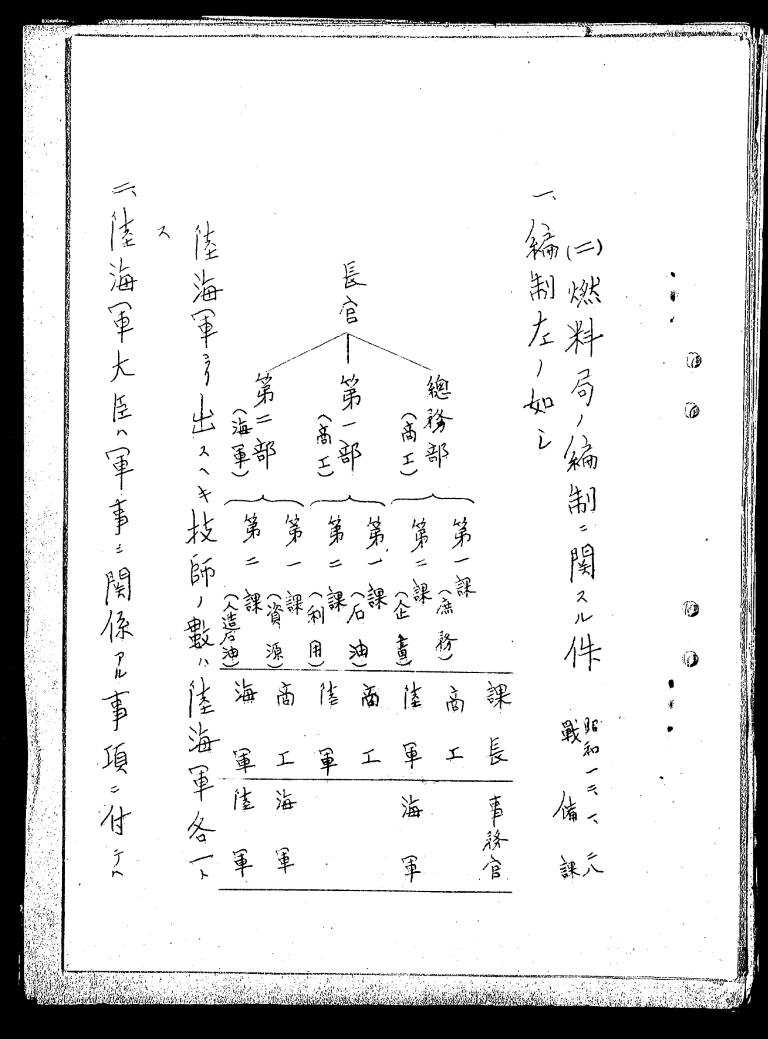 (二)燃料局ノ編制ニ関スル件
昭和一二、一、二八
戰備課
一、編制左ノ如シ
課長 事務官
長官
總務部(商工)
第一課(庶務) 商工
第二課(企畫) 陸軍 海軍
第一部(商工)
第一課(石油) 商工
第二課(利用) 陸軍
第二部(海軍)
第一課(資源) 商工 海軍
第二課(人造石油) 海軍 陸軍
陸海軍ヨリ出スヘキ技師ノ數ハ陸海軍各一ト
ス
二、陸海軍大臣ハ軍事ニ関係アル事項ニ付テハ